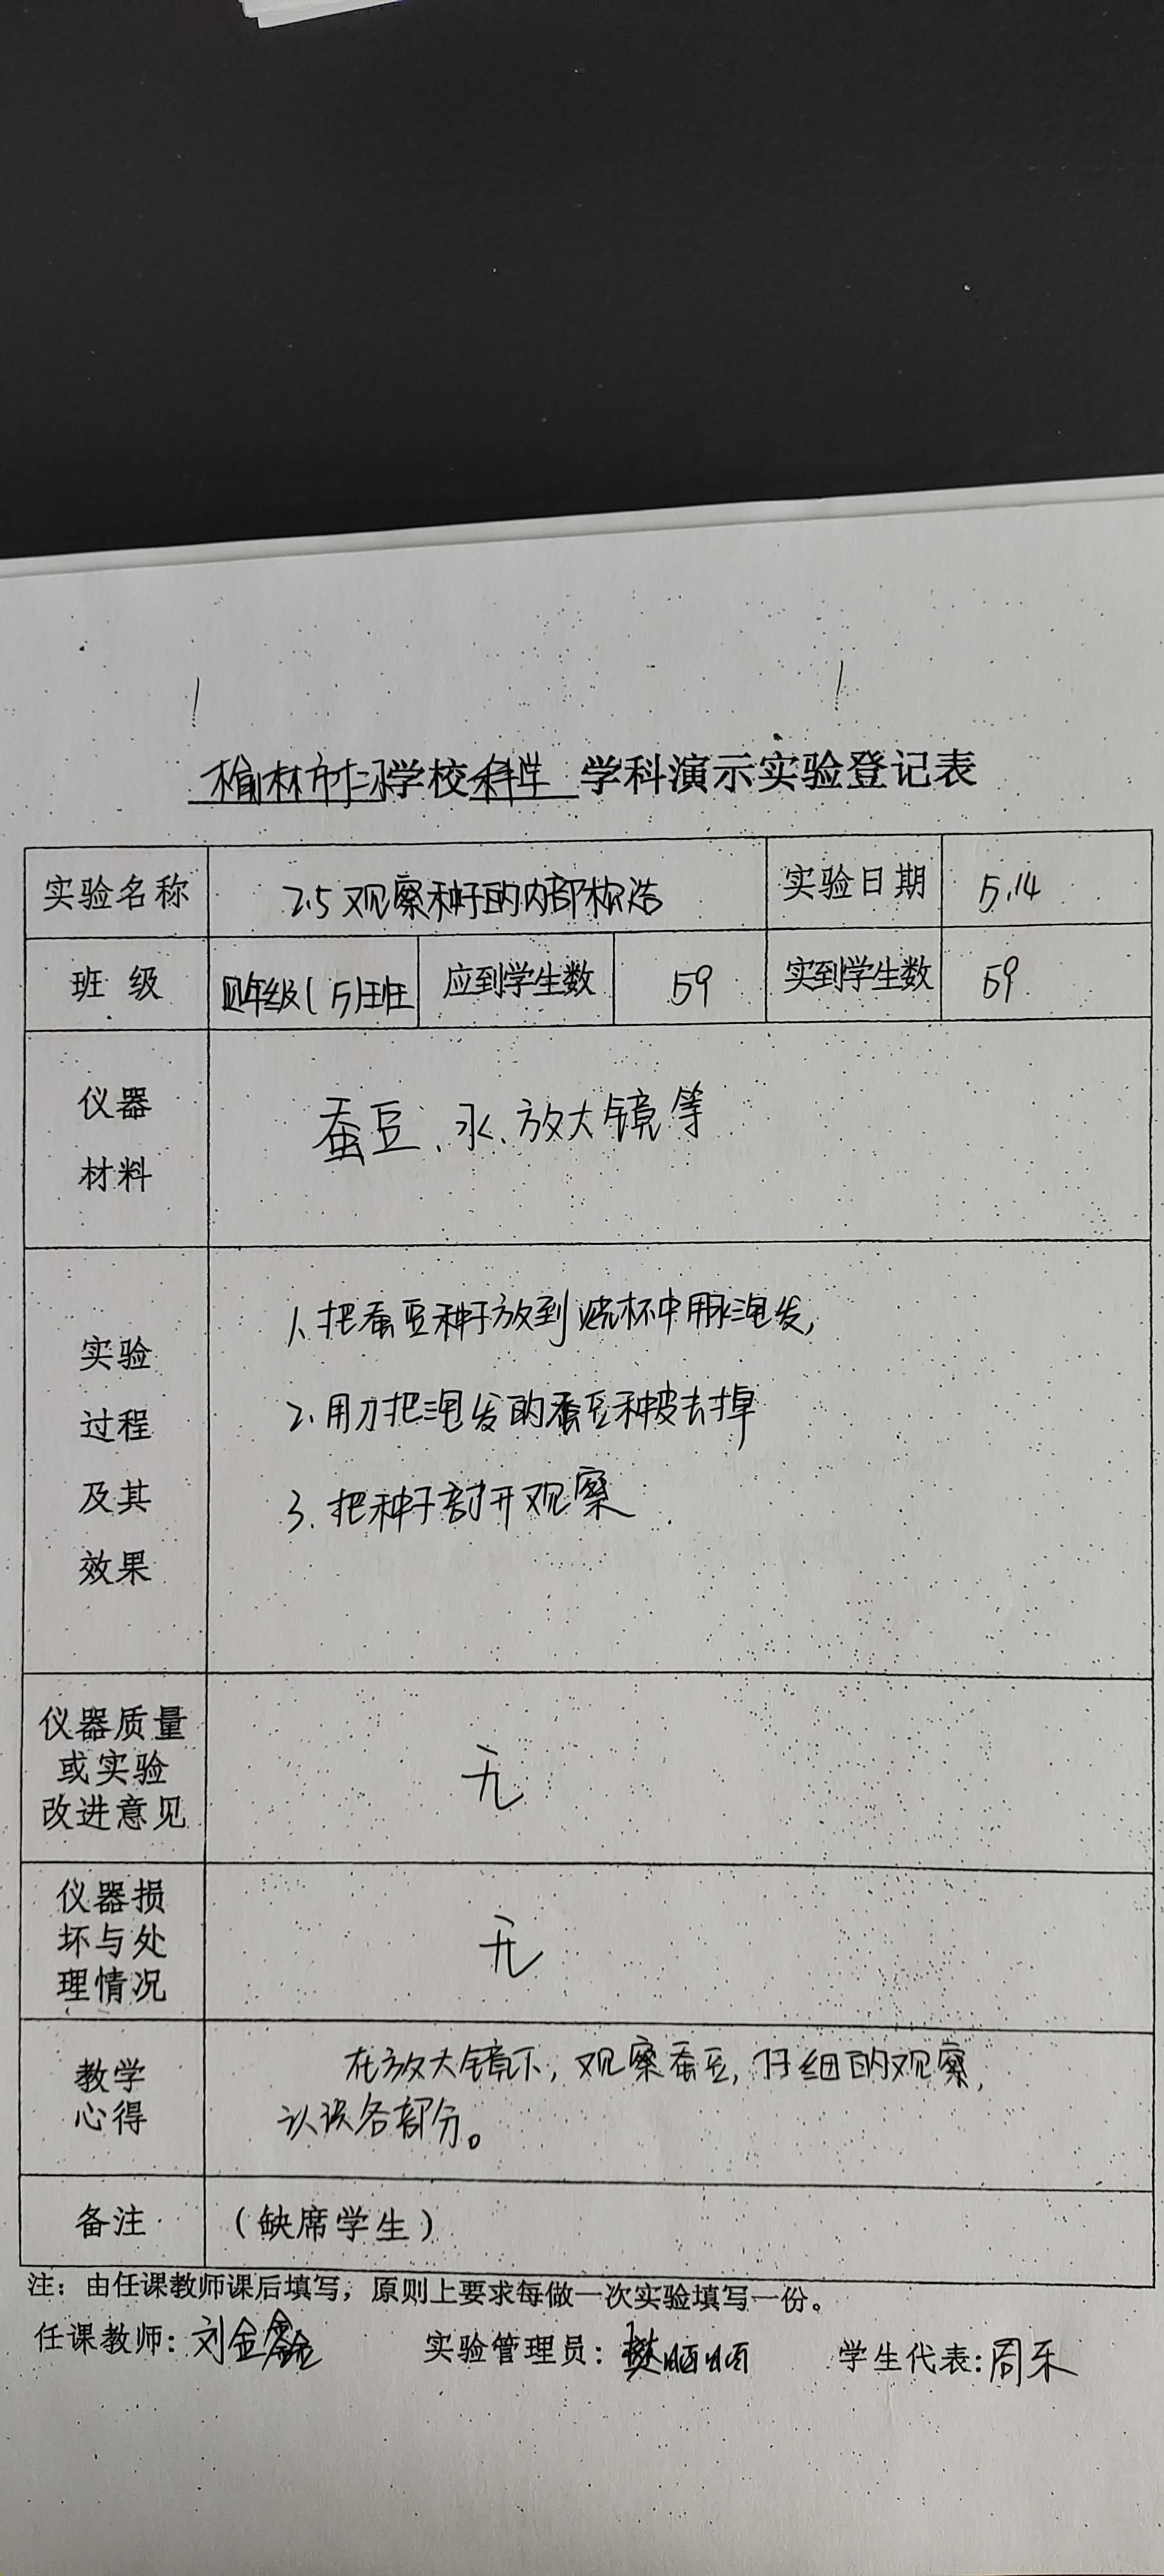 榆林市 学校 科学 学科演示实验登记表
实验名称 2.5 观察种子的内部构造 实验日期 5.14
班 级 四年级(5)班 应到学生数 59 实到学生数 59
仪器
材料
蚕豆、水、放大镜等
实验
过程
及其
效果
1、把蚕豆种子放到烧杯中用水泡发,
2.用刀把泡发的蚕豆种皮去掉
3.把种子剖开观察.
仪器质量
或实验
改进意见
无
仪器损
坏与处
理情况
无
教学
心得
在放大镜下,观察蚕豆,仔细的观察,
认识各部分。
备注 (缺席学生)
注:由任课教师课后填写,原则上要求每做一次实验填写一份。
任课教师:刘金鑫 实验管理员:樊 学生代表:周禾